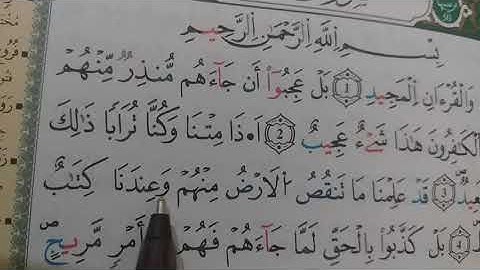 بِسْمِ اللَّهِ الرَّحْمَٰنِ الرَّحِيمِ
وَالْقُرْءَانِ الْمَجِيدِ ۝١ بَلْ عَجِبُوٓا۟ أَن جَآءَهُم مُّنذِرٌ مِّنْهُمْ
الْكَٰفِرُونَ هَٰذَا شَىْءٌ عَجِيبٌ ۝٢ أَءِذَا مِتْنَا وَكُنَّا تُرَابًا ذَٰلِكَ
۝٣ قَدْ عَلِمْنَا مَا تَنقُصُ الْأَرْضُ مِنْهُمْ وَعِندَنَا كِتَٰبٌ
۝٤ بَلْ كَذَّبُوا۟ بِالْحَقِّ لَمَّا جَآءَهُمْ فَهُمْ أَمْرٍ مَّرِيجٍ